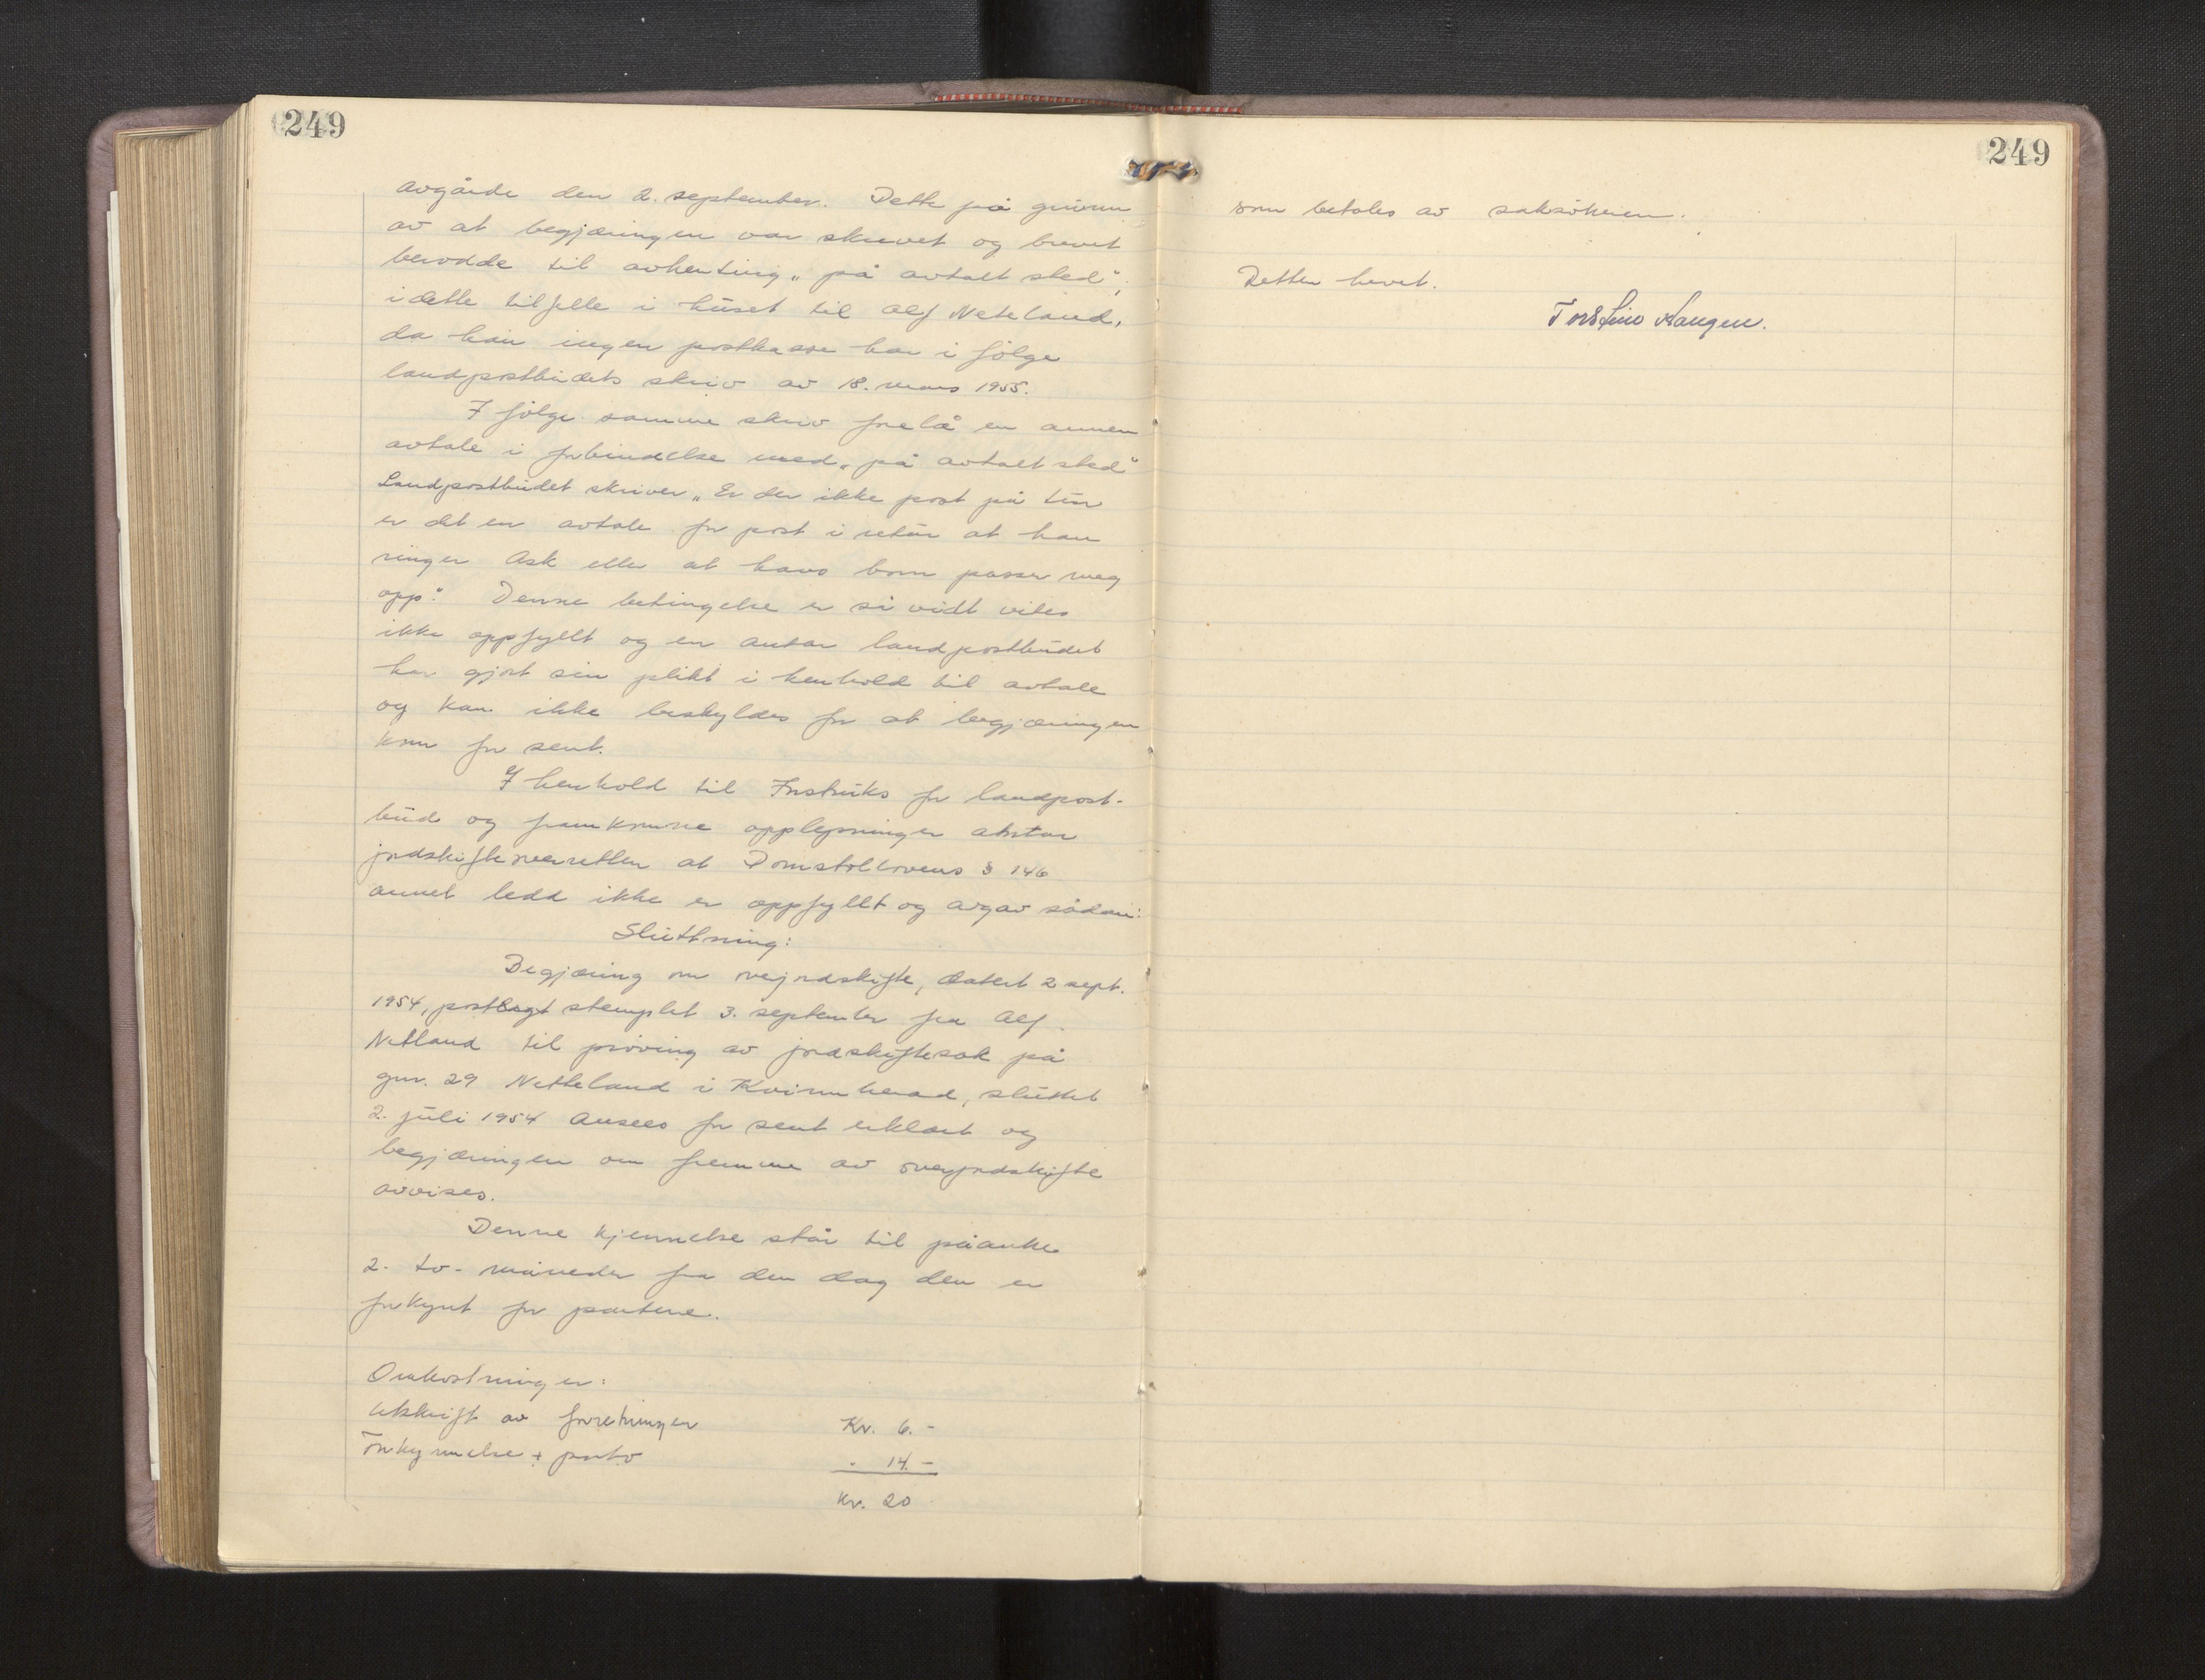 249
avgårde den 2. september. Dette på grunn
av at begjæringen var skrevet og brevet
berodde til avhenting „på avtalt sted",
i dette tilfelle i huset til Alf Neteland,
da han ingen postkasse har i følge
landpostbudets skriv av 18. mars 1955.
I følge samme skriv forelå en annen
avtale i forbindelse med „på avtalt sted"
Landpostbudet skriver „Er der ikke post på tur
er det en avtale for post i retur at han
ringer Ask eller at hans born passer meg
opp." Denne betingelse er så vidt vites
ikke oppfyllt og en antar landpostbudet
har gjort sin plikt i henhold til avtale
og kan ikke beskyldes for at begjæringen
kom for sent.
I henhold til Instruks for landpost-
bud og framkomne opplysninger antar
jordskifteoverretten at Domstollovens § 146
annet ledd ikke er oppfyllt og avgav sådan:
Slutning:
Begjæring om overjordskifte, datert 2 sept.
1954, postlagt stemplet 3. september fra Alf
Netland til prøving av jordskiftesak på
gnr. 29 Netteland i Kvinnherad, sluttet
2. juli 1954 ansees for sent erklært og
begjæringen om fremme av overjordskifte
avvises.
Denne kjennelse står til påanke
2. to- måneder fra den dag den er
forkynt for partene.
Omkostninger:
Utskrift av forretningen Kr. 6.-
Forkynnelse + porto " 14.-
Kr. 20
249
som betales av saksøkeren.
Retten hevet.
Torstein Haugen.